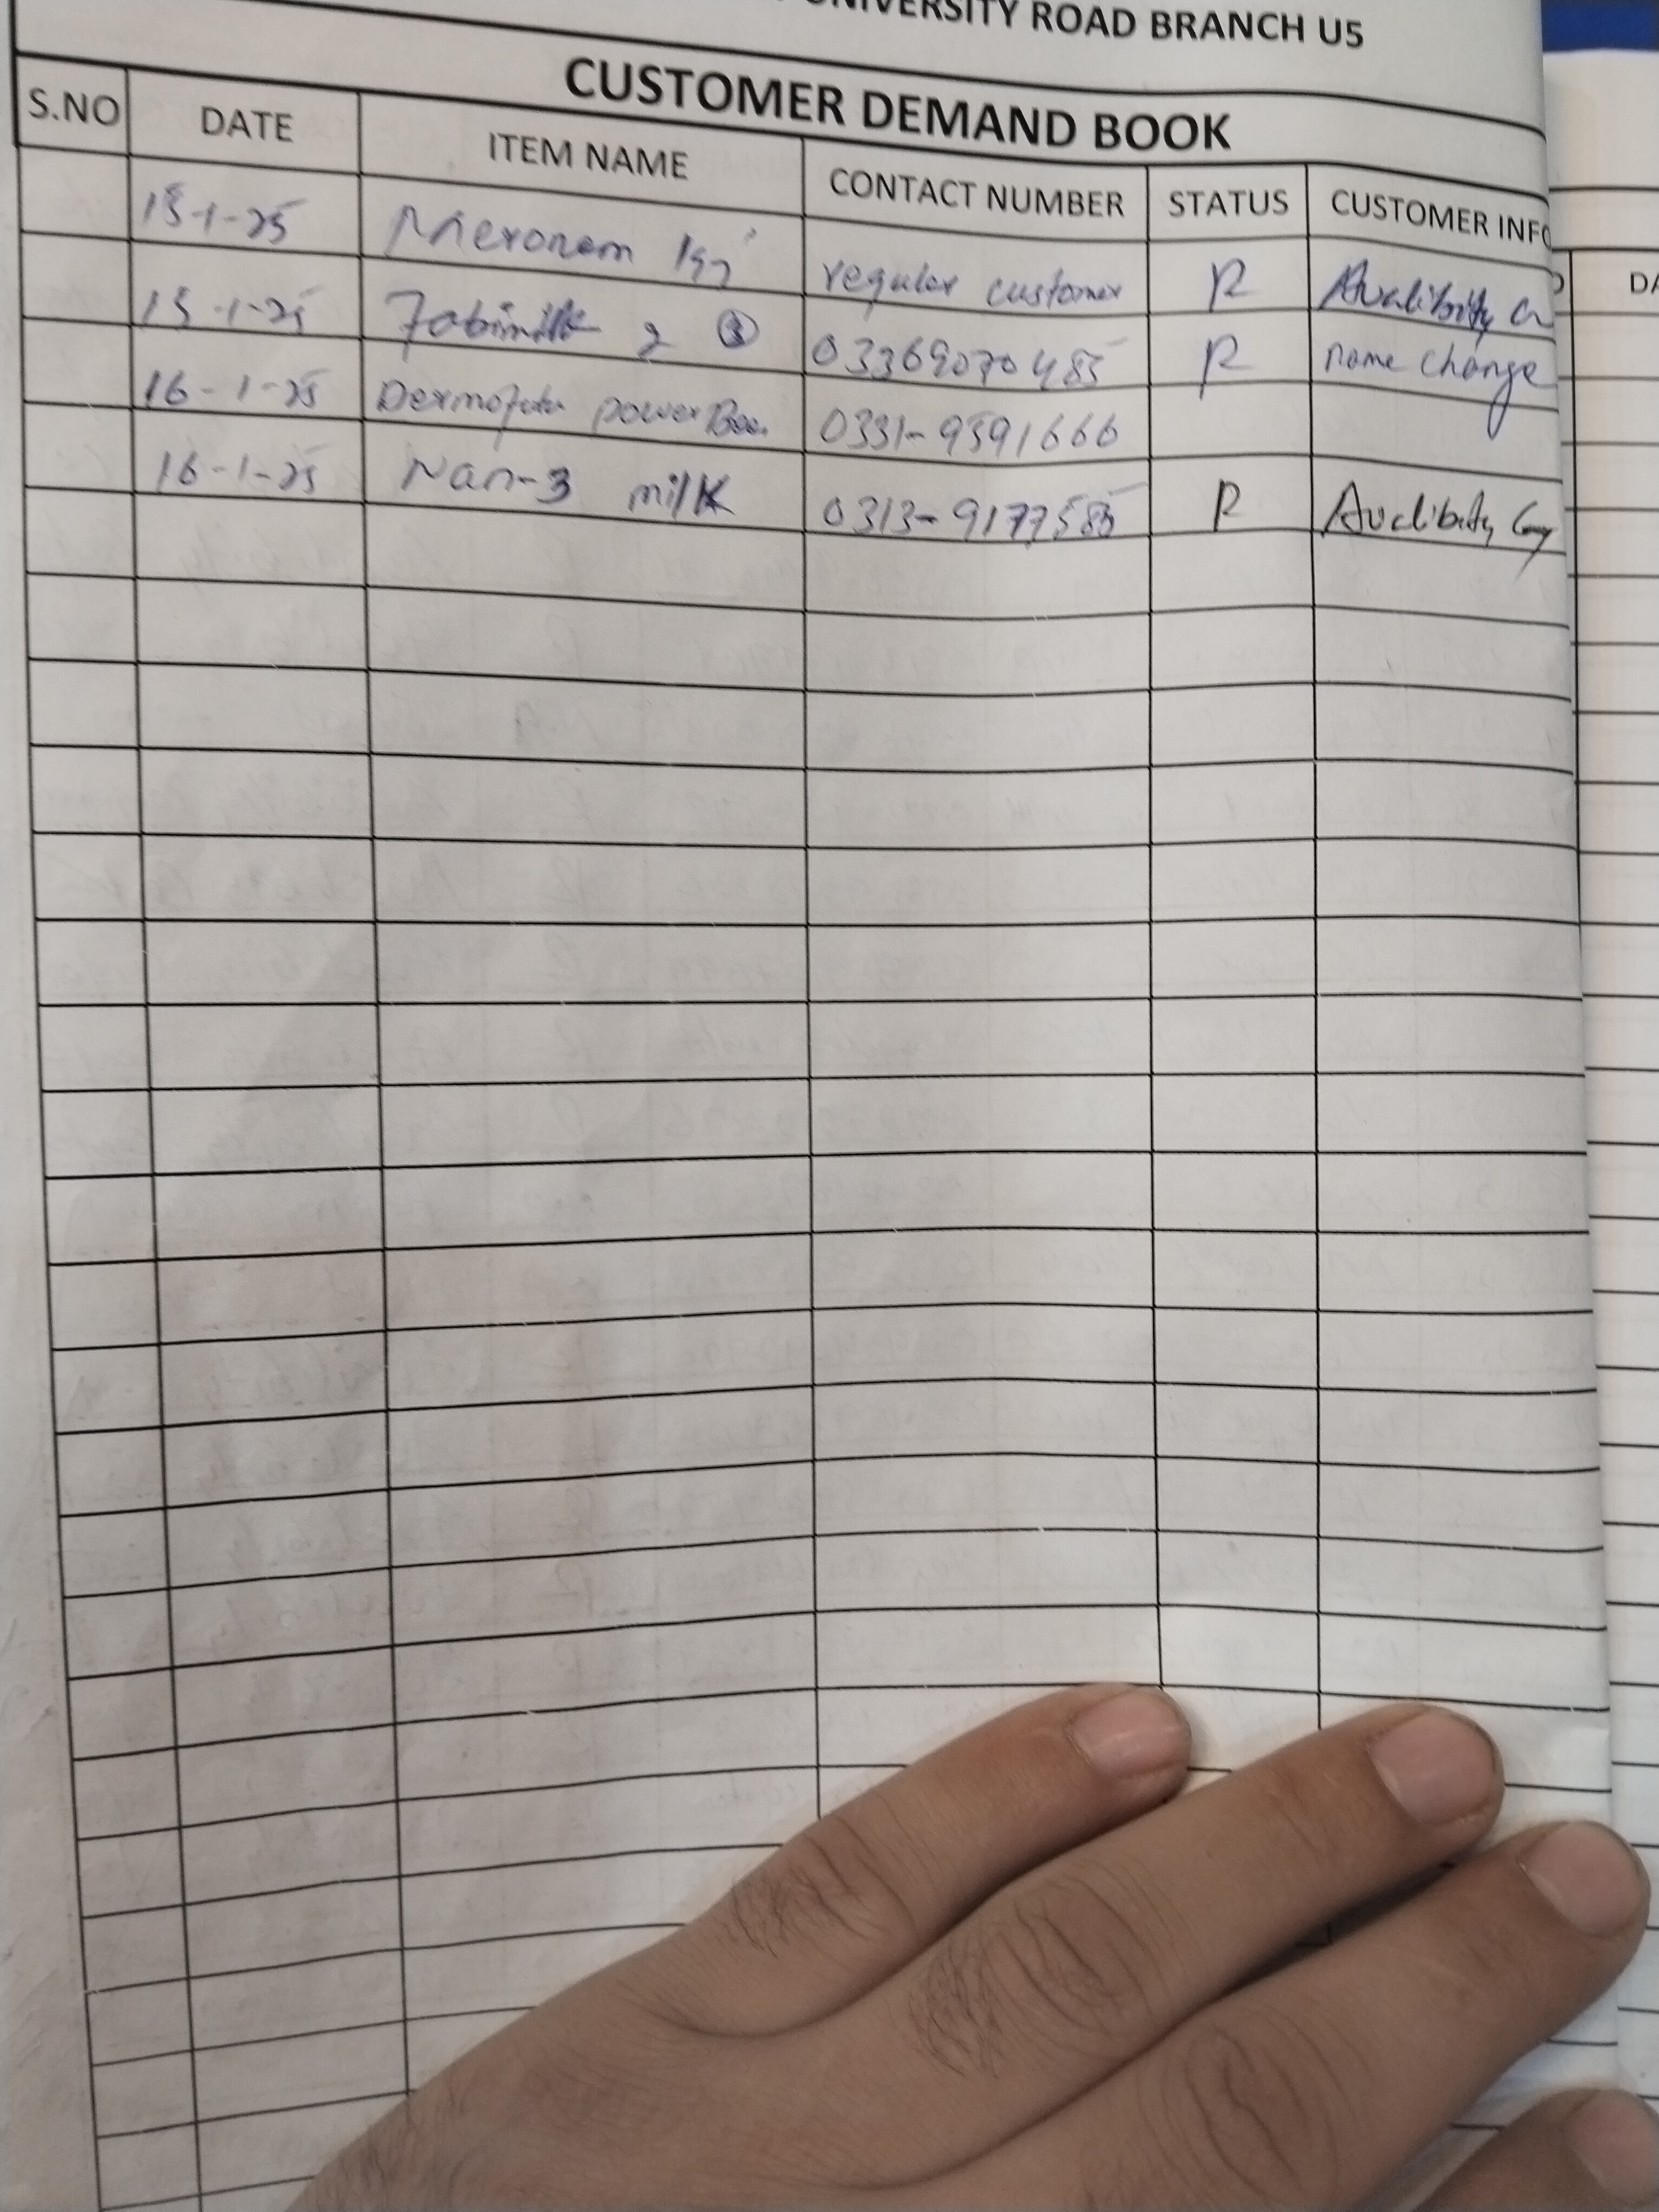 UNIVERSITY ROAD BRANCH U5
CUSTOMER DEMAND BOOK
S.NO DATE ITEM NAME CONTACT NUMBER STATUS CUSTOMER INFO
15-1-25 Meronem regular customer R Avalibity
15-1-25 2 03369070485 R name change
16-1-25 power 0331-9391666
16-1-25 Nan-3 milk 0313-9177585 R Avalibity
DA